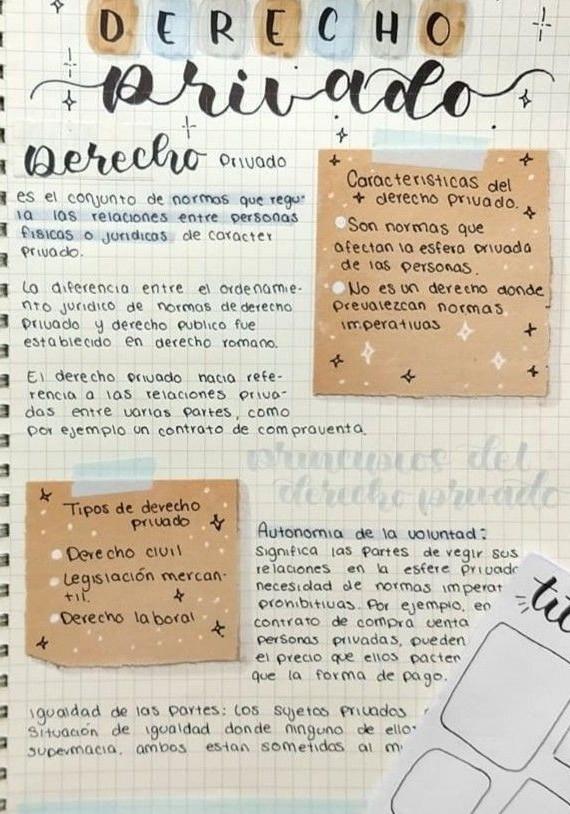 DERECHO
privado
Derecho privado
es el conjunto de normas que regu-
la las relaciones entre personas
fisicas o juridicas de caracter
privado.
La diferencia entre el ordenamie-
nto juridico de normas de derecho
privado y derecho publico fue
establecido en derecho romano.
El derecho privado hacia refe-
rencia a las relaciones priva-
das entre varias partes, como
por ejemplo un contrato de compraventa.
Caracteristicas del
derecho privado.
Son normas que
afectan la esfera privada
de las personas.
No es un derecho donde
prevalezcan normas
imperativas
Tipos de derecho
privado
Derecho civil
Legislación mercan-
til.
Derecho laboral
principios del
derecho privado
Autonomia de la voluntad:
Significa las partes de regir sus
relaciones en la esfere privada
necesidad de normas imperat
prohibitivas. Por ejemplo, en
contrato de compra venta
personas privadas, pueden
el precio que ellos pacten
que la forma de pago.
Igualdad de las partes: Los sujetos privados
situación de igualdad donde ninguno de ello
supevmacia, ambos estan sometidos al m
tit